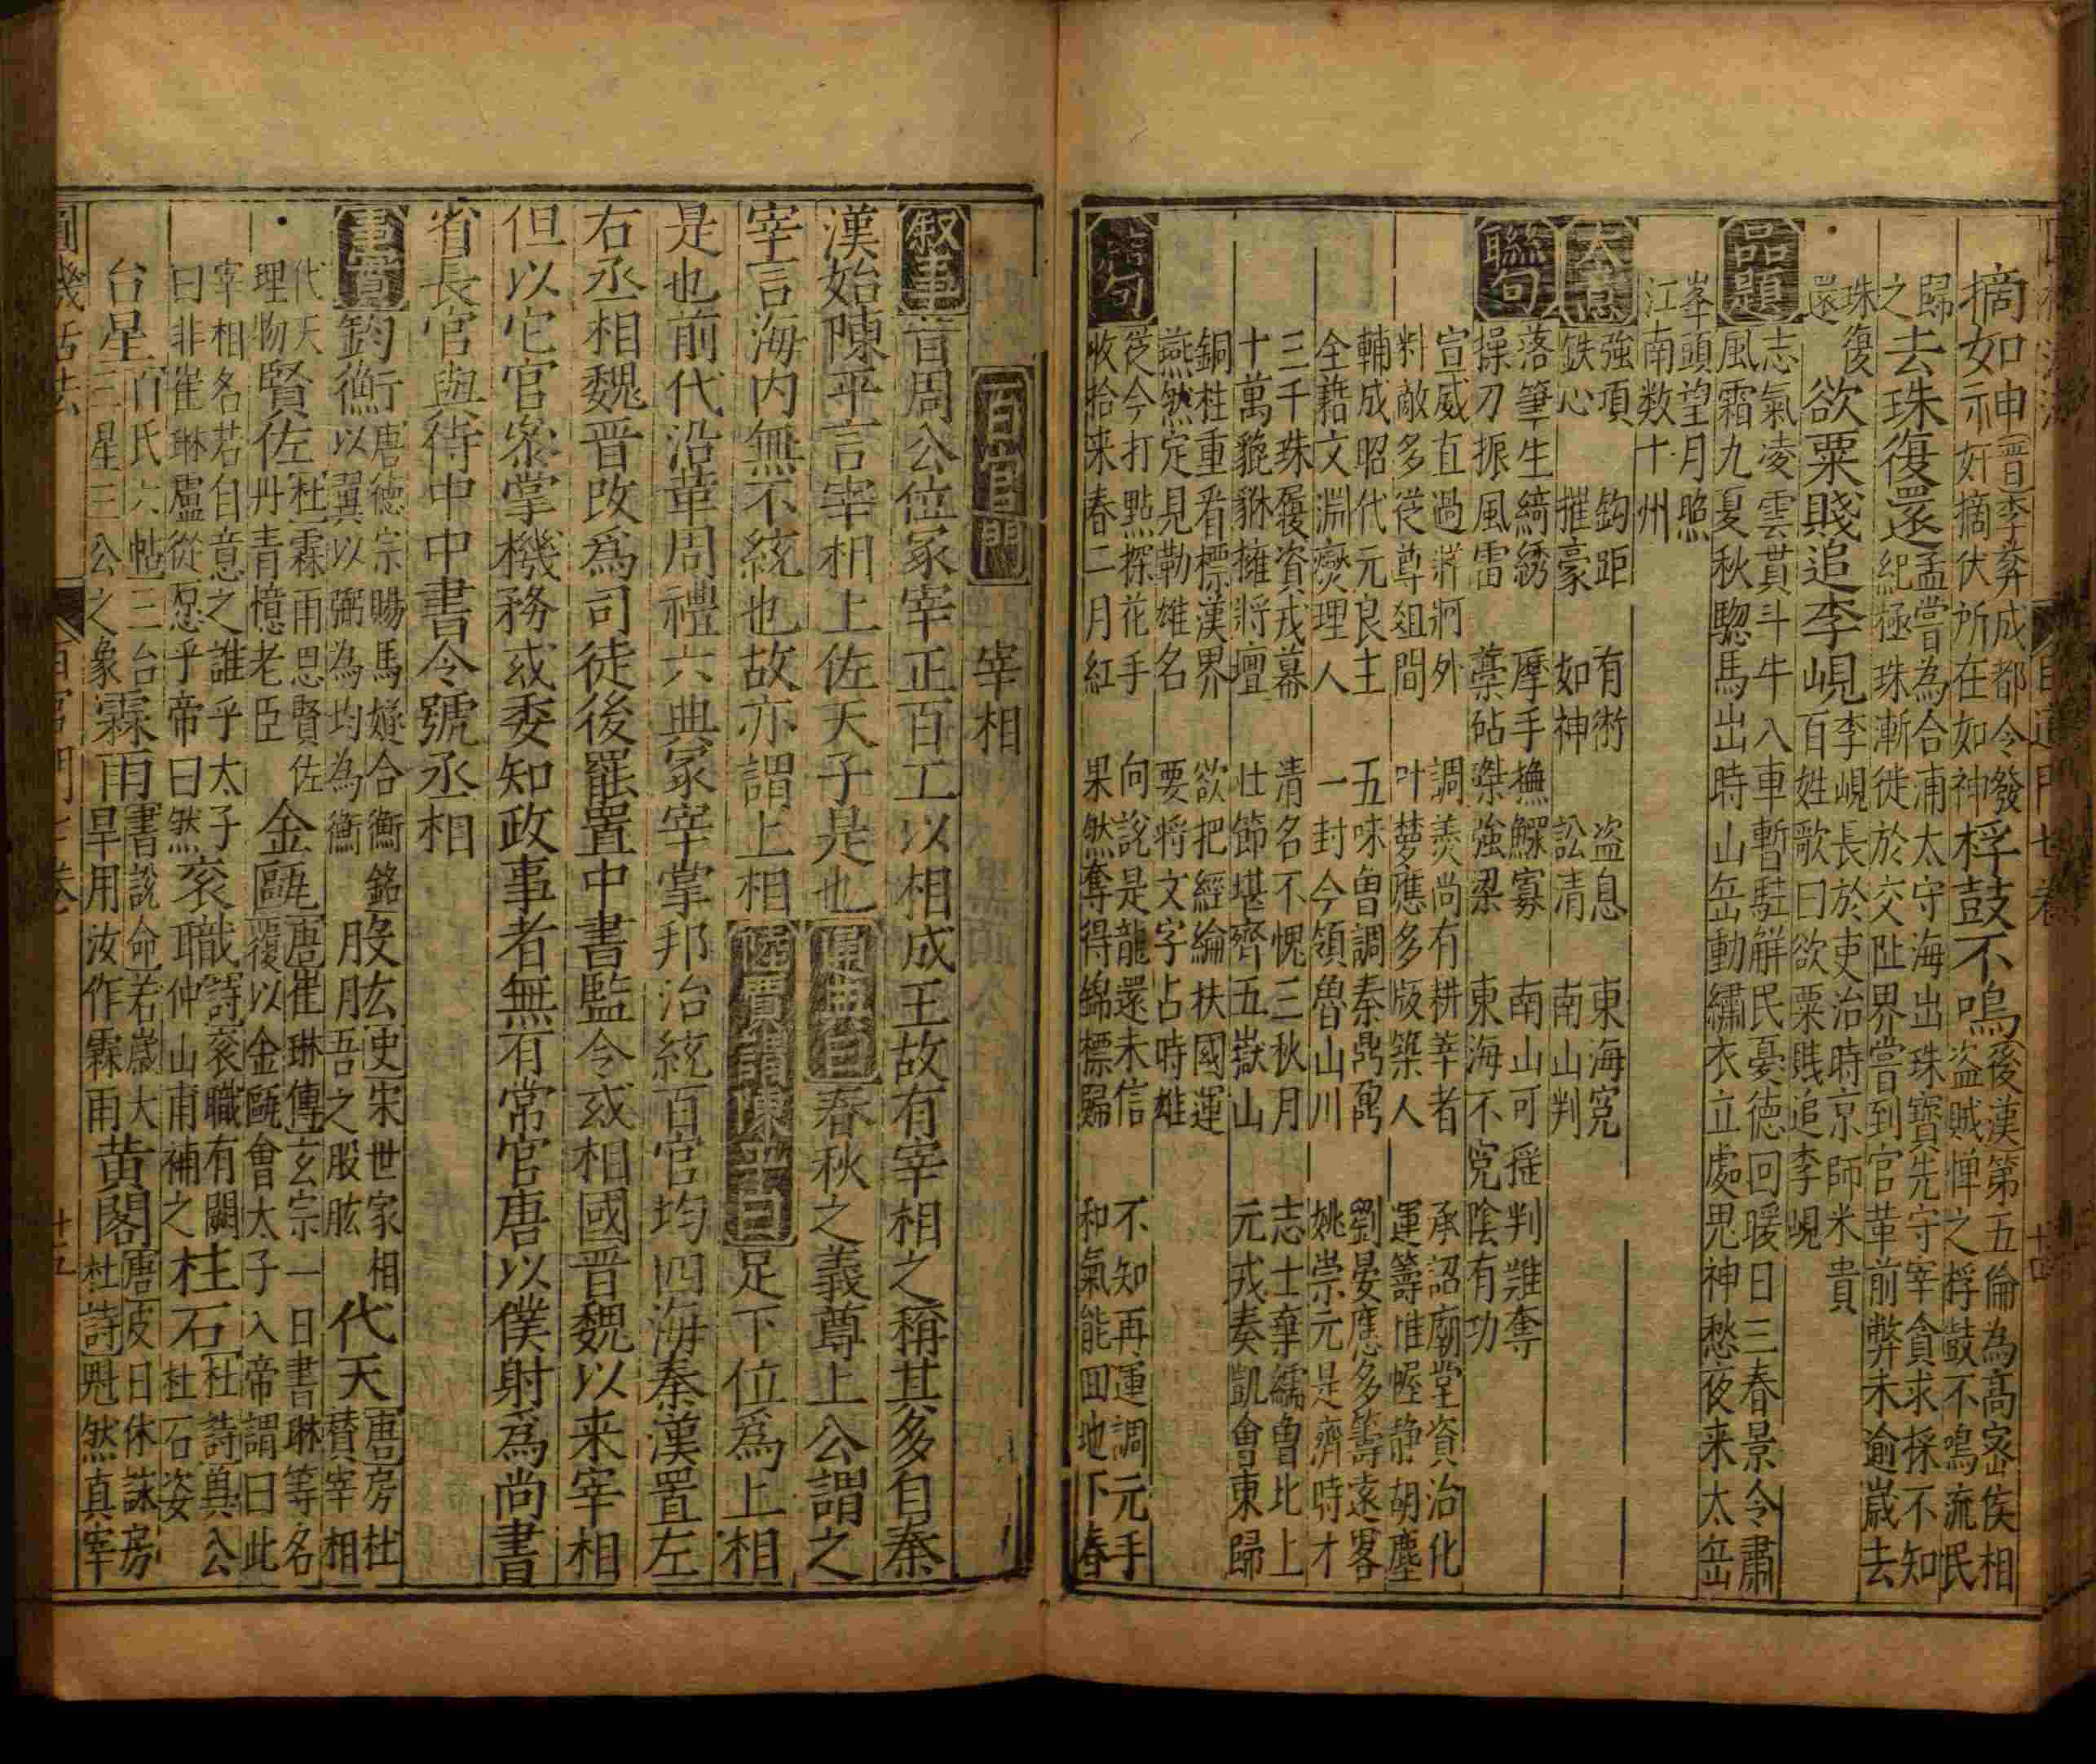 摘如神晋李弈成都令發
奸摘伏所在如神
桴鼓不鳴後漢第五倫為高密侯相
盗賊憚之桴鼓不鳴流民
歸
之
去珠復還孟嘗為合浦太守海出珠寳先守宰貪求採不知
紀極珠漸徙於交阯界嘗到官革前弊未逾歲去
珠復
還
欲粟賤追李峴李峴長於吏治時京師米貴
百姓歌曰欲粟賤追李峴
品題
志氣凌雲貫斗牛八車暫駐觧民憂德回暖日三春景令肅
風霜九夏秋驄馬出時山岳動繡衣立處鬼神愁夜来太岳
峯頭望月照
江南数十州
大意
強項 鈎距 有術 盗息 東海寃
鉄心 摧豪 如神 訟清 南山判
聯句
落筆生綺綉 摩手撫鰥寡 南山可揺判難奪
操刀振風雷 藁砧桀強梁 東海不寃陰有功
宣威直過湃牁外 調羹尚有耕莘者 承詔廟堂資治化
料敵多從尊俎間 叶夢應多版築人 運籌惟幄静胡塵
輔成昭代元良主 五味曽調秦鼎鼐 劉晏應多籌遠畧
全藉文淵爕理人 一封今領魯山川 姚崇元是濟時才
三千珠履資戎幕 清名不愧三秋月 志士棄繻曽北上
十萬貔貅擁將壇 壮節堪齊五嶽山 元戎奏凱會東歸
銅柱重看標漢界 欲把經綸扶國運
燕然定見勒雄名 要将文字占時雄
結句
從今打點探花手 向說是龍還未信 不知再運調元手
收拾来春二月紅 果然奪得錦標歸 和氣能回地下春
百官門
宰相
叙事昔周公位冢宰正百工以相成王故有宰相之稱其多自秦
漢始陳平言宰相上佐天子是也通典曰春秋之義尊上公謂之
宰言海内無不統也故亦謂上相陸賈謂陳平曰足下位為上相
是也前代沿革周禮六典冢宰掌邦治統百官均四海秦漢置左
右丞相魏晋改為司徒後罷置中書監令或相國晋魏以来宰相
但以它官衆掌機務或委知政事者無有常官唐以僕射為尚書
省長官與待中中書令號丞相
事實
鈞衡唐徳宗賜馬燧合衡銘
以翼以弼為均為衡
股肱史宋世家相
吾之股肱
代天唐房杜
賛宰相
代天
理物
賢佐杜霖雨思賢佐
丹青憶老臣
金甌唐崔琳傳玄宗一日書琳等名
覆以金甌會太子入帝謂曰此
宰相名若自意之誰乎太子
曰非崔琳盧從愿乎帝曰然
衮職詩衮職有闕
仲山甫補之
柱石杜詩奠公
柱石姿
台星百氏六帖三台
三星三公之象
霖雨書說命若歲大
旱用汝作霖雨
黄閣唐皮日休詠房
杜詩魁然真宰
百官門七卷
十五